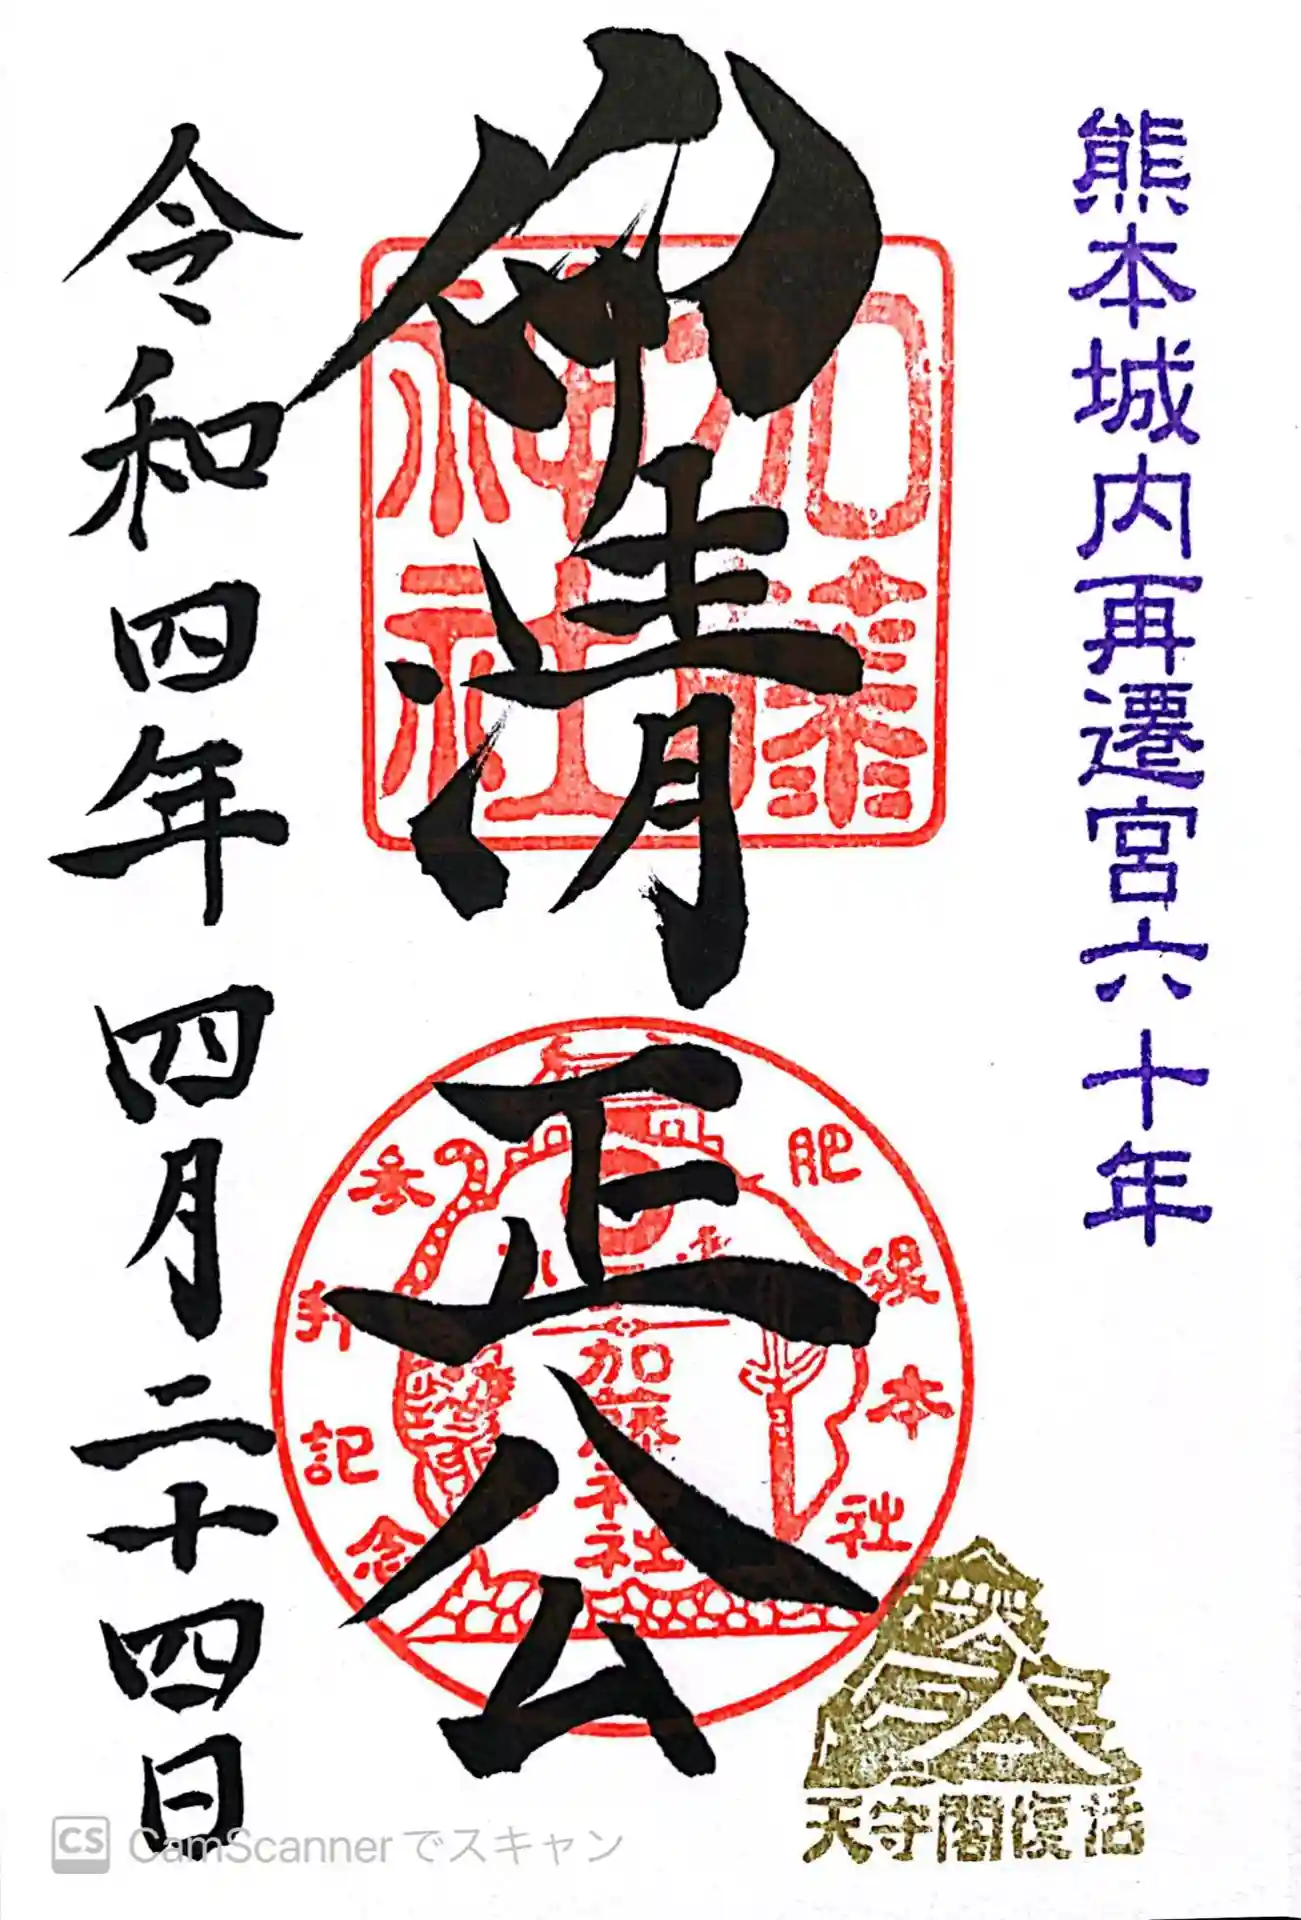 熊本城内再遷宮六十年
仰清正公
加藤
神社
肥後本社
参拝記念
加藤神社
天守閣復活
令和四年四月二十四日
CS CamScannerでスキャン